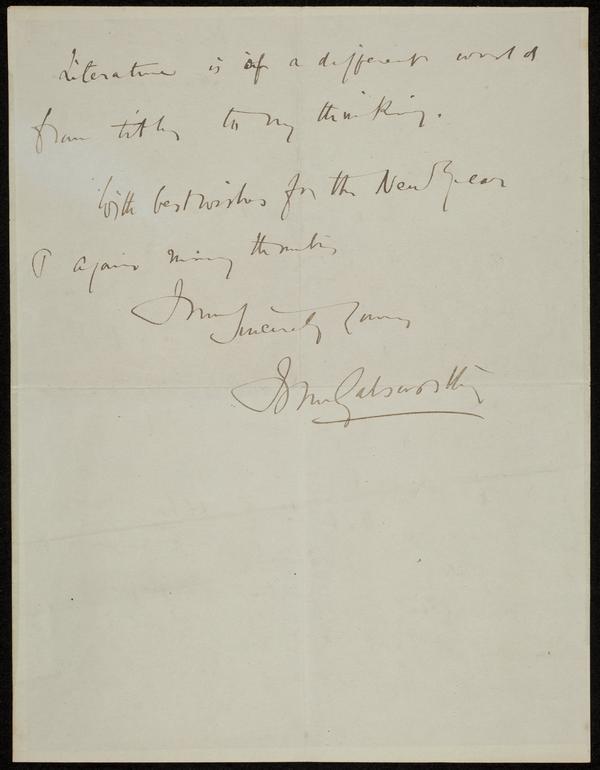 Literature is of a different world
from titles to my thinking.
With best wishes for the New Year
& again many thanks
I am
Sincerely Yours
John Galsworthy